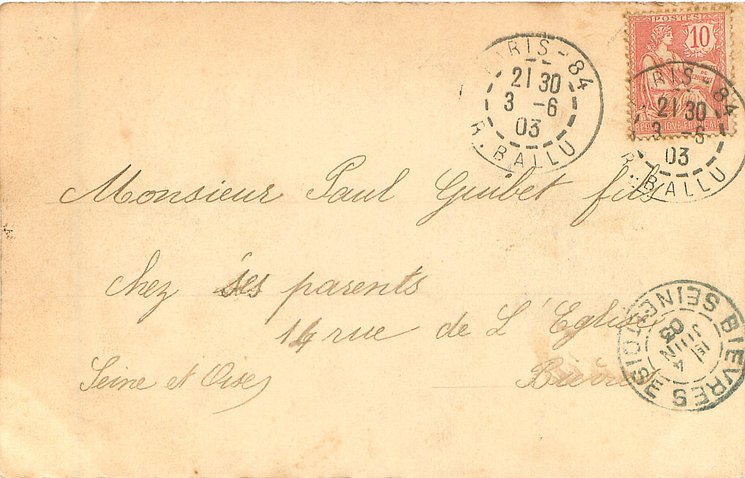 PARIS-84
21 30
3 -6
03
R. BALLU
POSTES
10
REPUBLIQUE FRANCAISE
PARIS-84
21 30
3 -6
03
R. BALLU
Monsieur Paul Guibet fils
chez ses parents
14 rue de L'Eglise
Seine et Oise Bièvres
BIEVRES SEINE ET OISE
1E
4
JUIN
03